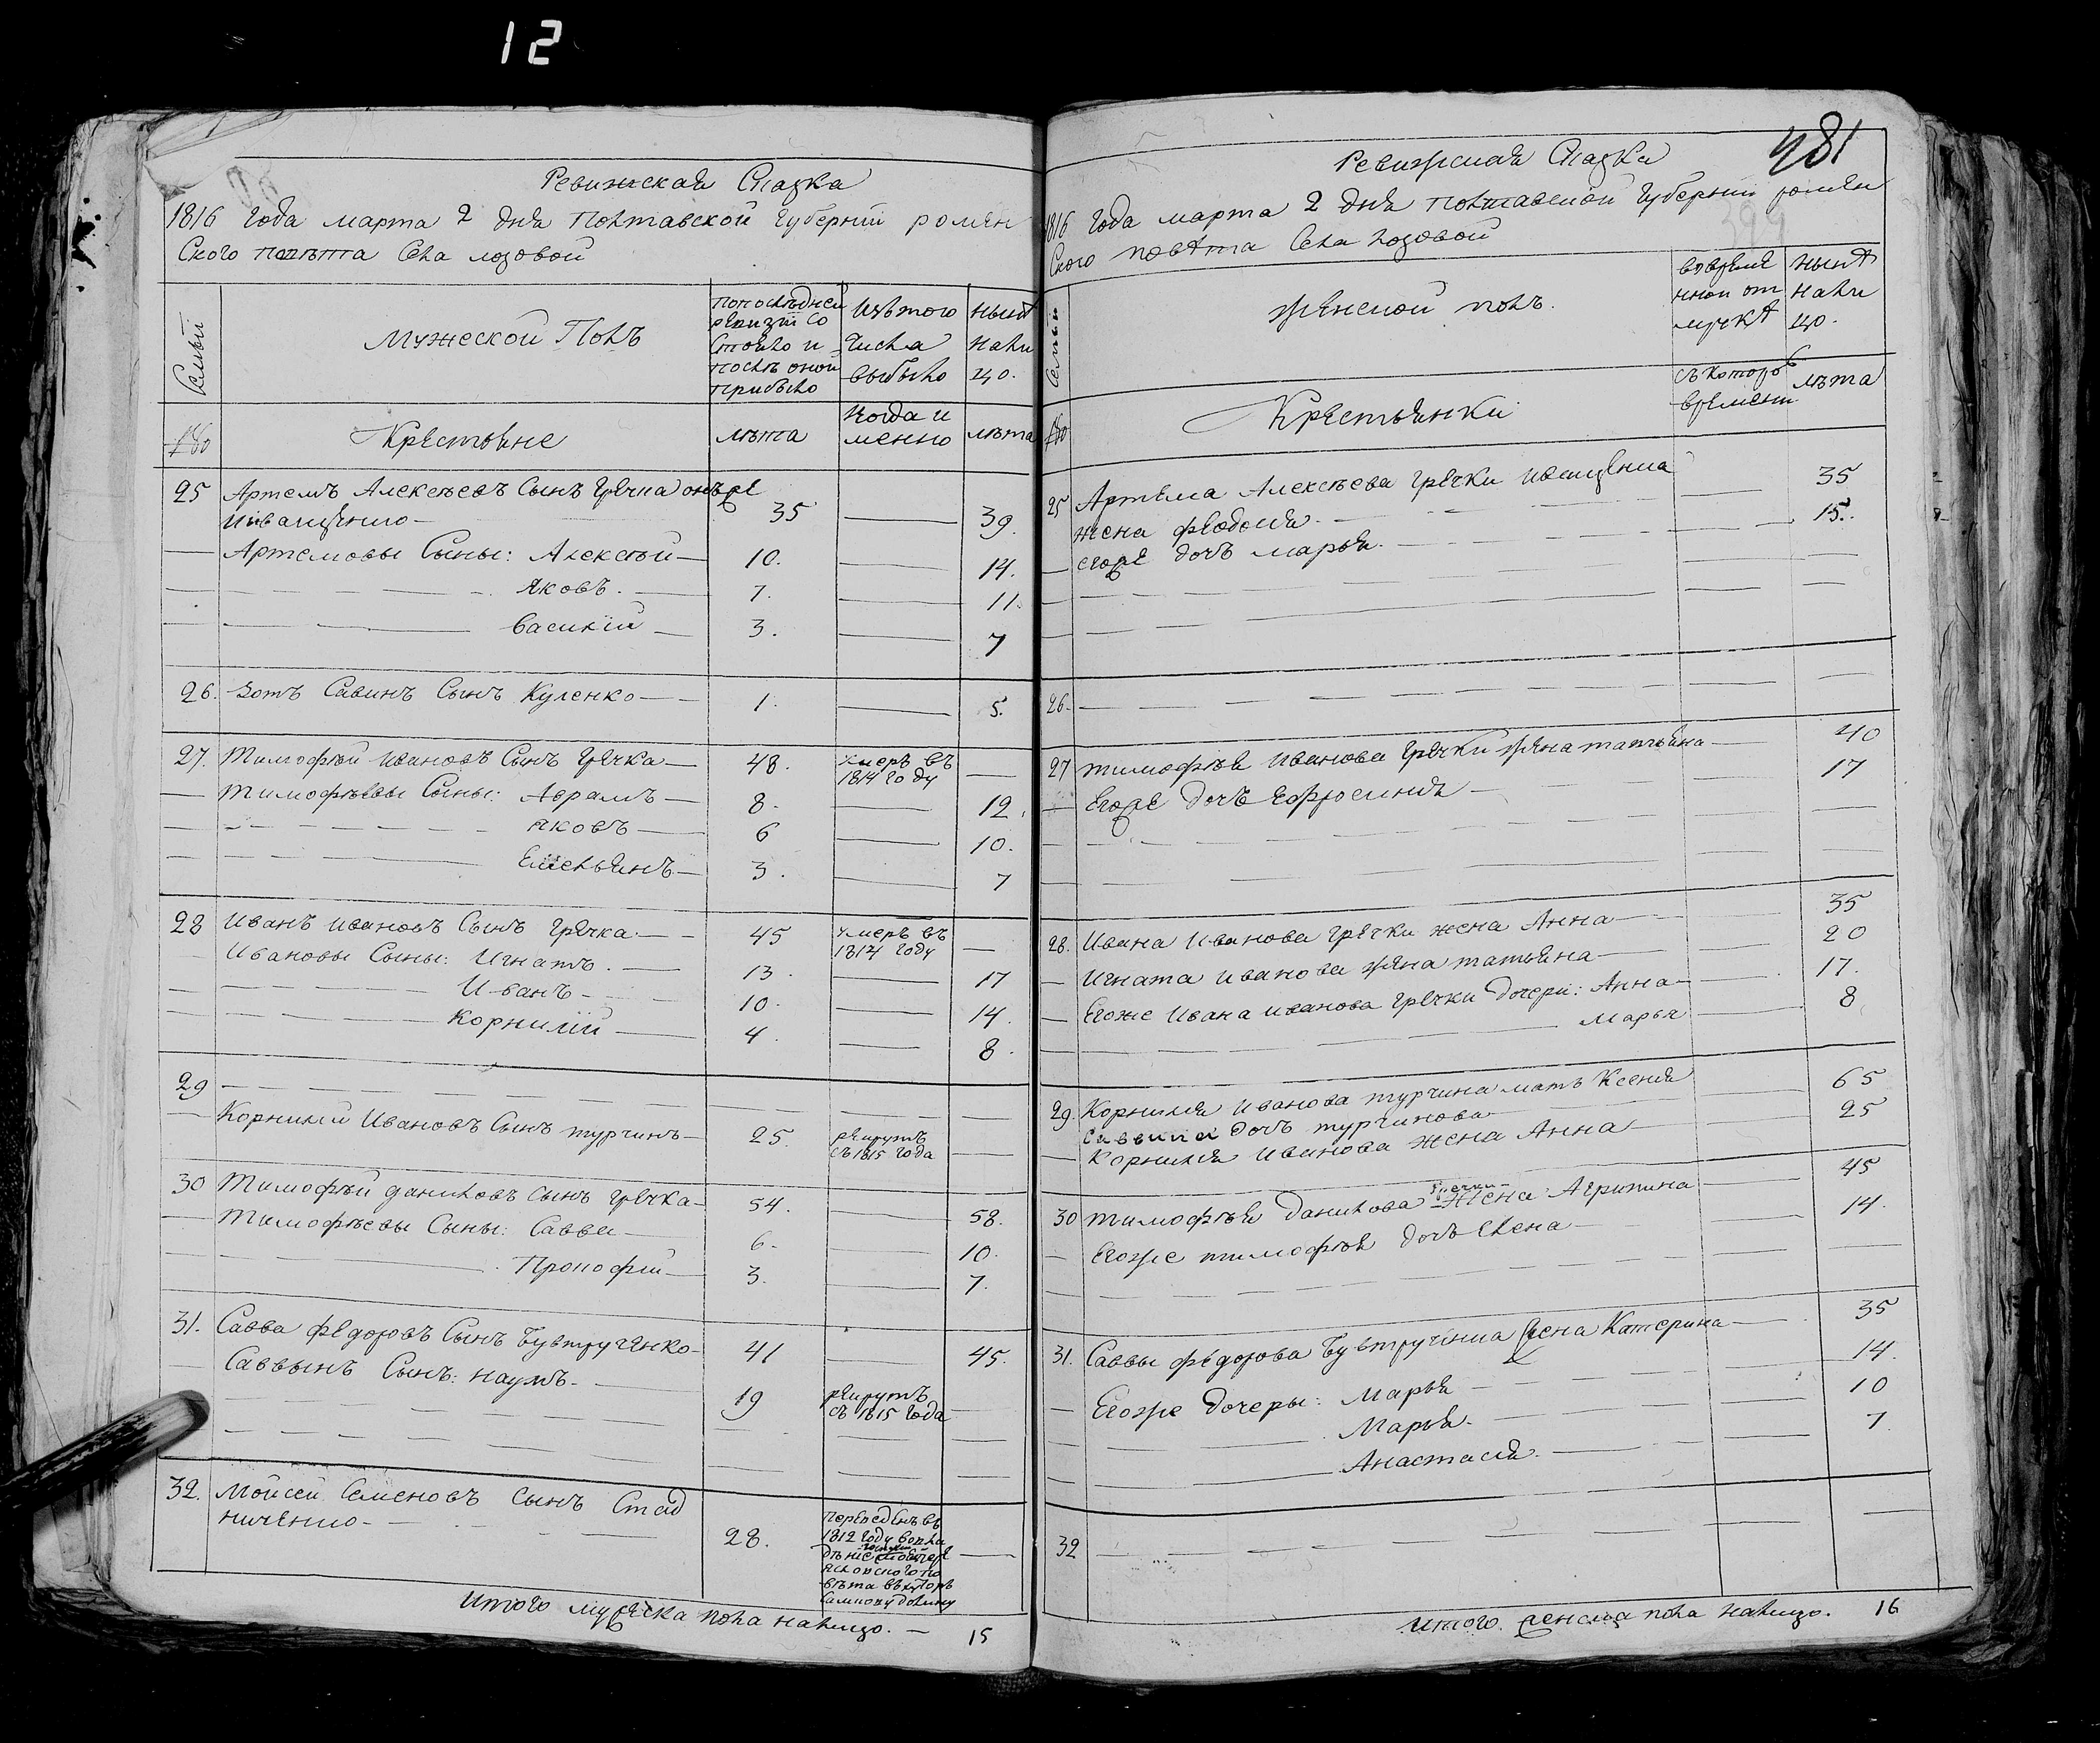 12
Ревижская Сказка
1816 года марта 2 дня Полтавской Губернии ромен
ского повѣта Села лозовой
Семьи
Мужеской Полъ
по послѣдней
ревизіи со
стояло и
послѣ оной
прибыло
Изъ того
числа
выбыло
нынѣ
нали
цо.
№
Крестьяне
лѣта
Когда и
менно
лѣта
25 Артемъ Алексѣевъ Сынъ Гречка онъже
Иващенко 35 39.
Артемовы Сыны: Алексѣй 10. 14.
Яковъ. 7. 11.
Василій 3. 7
26. Зотъ Савинъ Сынъ Куленко 1. 5.
27. Тимофѣй Ивановъ Сынъ Гречка 48. умеръ въ
1814 году
Тимофѣевы Сыны: Абрамъ 8. 12.
Яковъ 6 10.
Емельянъ 3. 7
28 Иванъ Ивановъ Сынъ Гречка 45 умеръ въ
1814 году
Ивановы Сыны: Игнатъ. 13. 17
Иванъ 10. 14.
Корнилій 4. 8.
29
Корнилій Ивановъ Сынъ турчинъ 25. рекрутъ
съ 1815 года
30 Тимофѣй Даниловъ Сынъ Гречка 54. 58.
Тимофѣевы Сыны: Савва 6. 10.
Прокофій 3. 7.
31. Савва Федоровъ Сынъ Бувтрученко 41 45.
Саввынъ Сынъ: Наумъ 19 рекрутъ
съ 1815 года
32. Мойсей Семеновъ Сынъ Стад
ниченко 28. переведенъ въ
1812 году
Итого мужеска пола налицо. 15
481
Ревижская Сказка
1816 года марта 2 дня Полтавской Губернии ромен
ского повѣта Села лозовой
Семьи
женской полъ.
во време
нной от
лучкѣ
нынѣ
нали
цо.
№
Крестьянки
съ котораго
времени
лѣта
25 Артема Алексѣева Гречки Иващенка
жена Феодосия 35
егоже дочь марья 15.
26.
27 тимофѣя Иванова Гречки жена татьяна 40
Егоже дочь Ефросиния 17
28. Ивана Иванова Гречки жена Анна 35
Игната Иванова жена татьяна 20
Егоже Ивана иванова Гречки Дочери: Анна 17.
Марья 8.
29. Корнилия Иванова турчина мать Ксения 65
дочь турчинова
Корнилия Иванова жена Анна 25
гречки
30 тимофѣя Данилова жена Агрипина 45
Егоже тимофѣя дочь Елена 14.
31. Саввы Федорова Бувтрученка жена Катерина 35
Егоже Дочеры: Марья 14.
Марья 10
Анастасия. 7
32
Итого женска пола налицо. 16